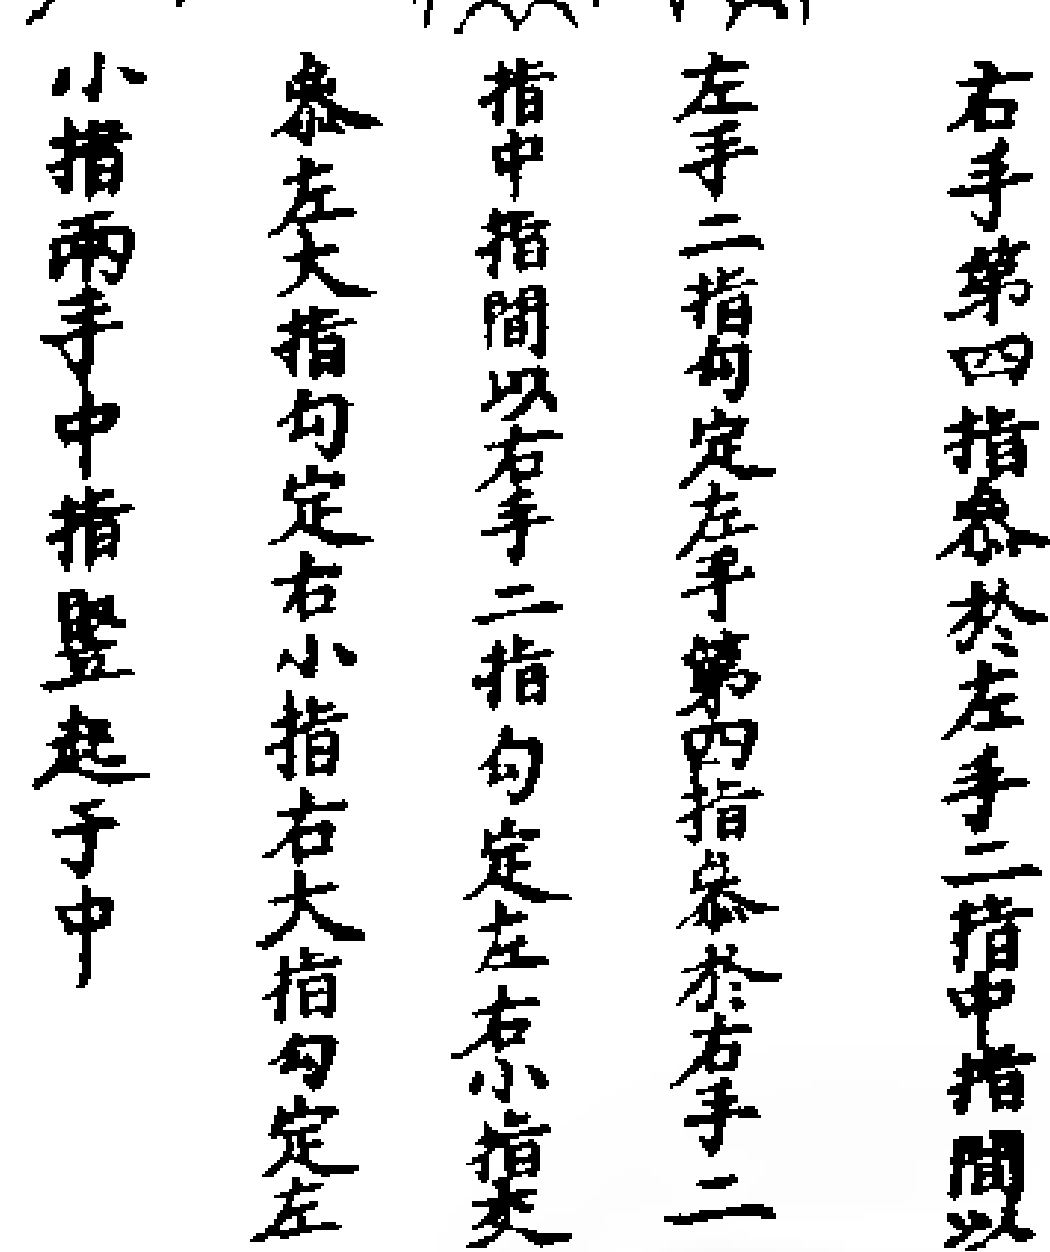 右手第四指叅於左手二指中指間以
左手二指勾定左手第四指叅於右手二
指中指間以右手二指勾定左右小指交
叅左大指勾定右小指右大指勾定左
小指兩手中指竪起子中